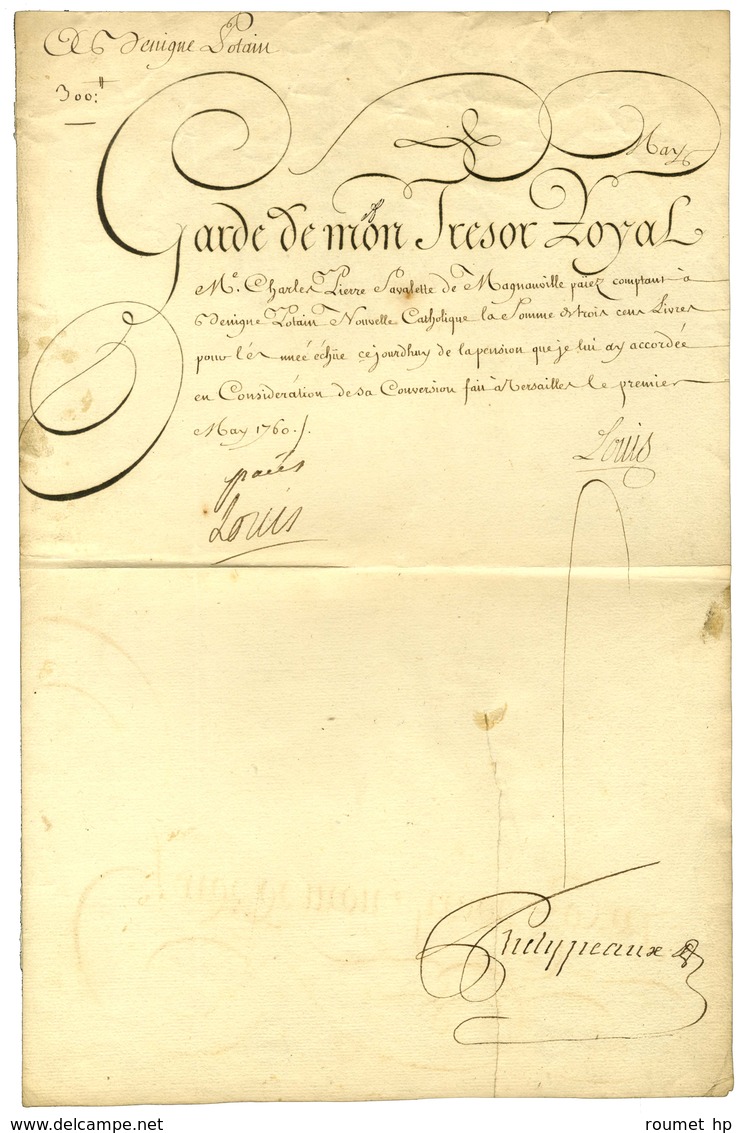 Benigne Potain
300.ᵗᵗ
May
Garde de mon Tresor Royal
Mᵉ. Charles Pierre Savalette de Magnanville païez comptant à
Benigne Potain Nouvelle Catholique la Somme de trois cens Livres
pour l'année échüe cejourdhuy de la pension que je lui ay accordée
en Consideration de sa Conversion fait à Versailles le premier
May 1760./.
Louis
païés
Louis
Phelypeaux
roumet hp